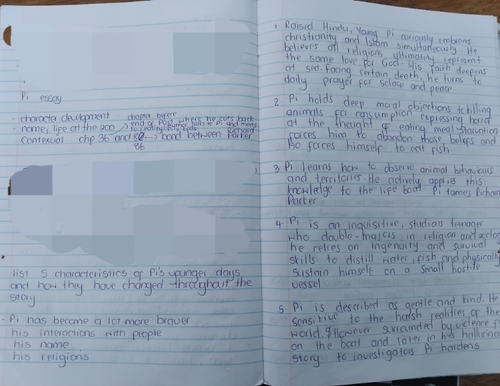 Pi essay
- character development
chapter before
end of pg
where he cuts back
- name, life at the zoo
contexual chp. 36 and 86
bond between Richard Parker
86
list 5 characteristics of Pi's younger days
and how they have changed throughout the
story
- Pi has become a lot more brauer
his interactions with people
his name
his religions
1 Raised Hindu, Young Pi curiously embraces
christianity and Islam simultaneously. He
believes all religions ultimately represent
the same love for God. His faith deepens
at sea. Facing certain death, he turns to
daily prayer for solace and peace
2 Pi holds deep moral objections to killing
animals for consumption expressing horror
at the thought of eating meat. Starvation
forces him to abandon those beliefs and
he forces himself to eat fish
3 Pi learns how to observe animal behaviours
and territories. He actively applies this
knowledge to the life boat. Pi tames Richard
Parker
4 Pi is an inquisitive, studious teenager
who double-majors in religion and zoology
he relies on ingenuity and survival
skills to distill water, fish and physically
sustain himself on a small hostile
vessel
5 Pi is described as gentle and kind. He
sensitive to the harsh realities of the
world. However surrounded by violence
on the boat and later in his
story to investigators Pi hardens